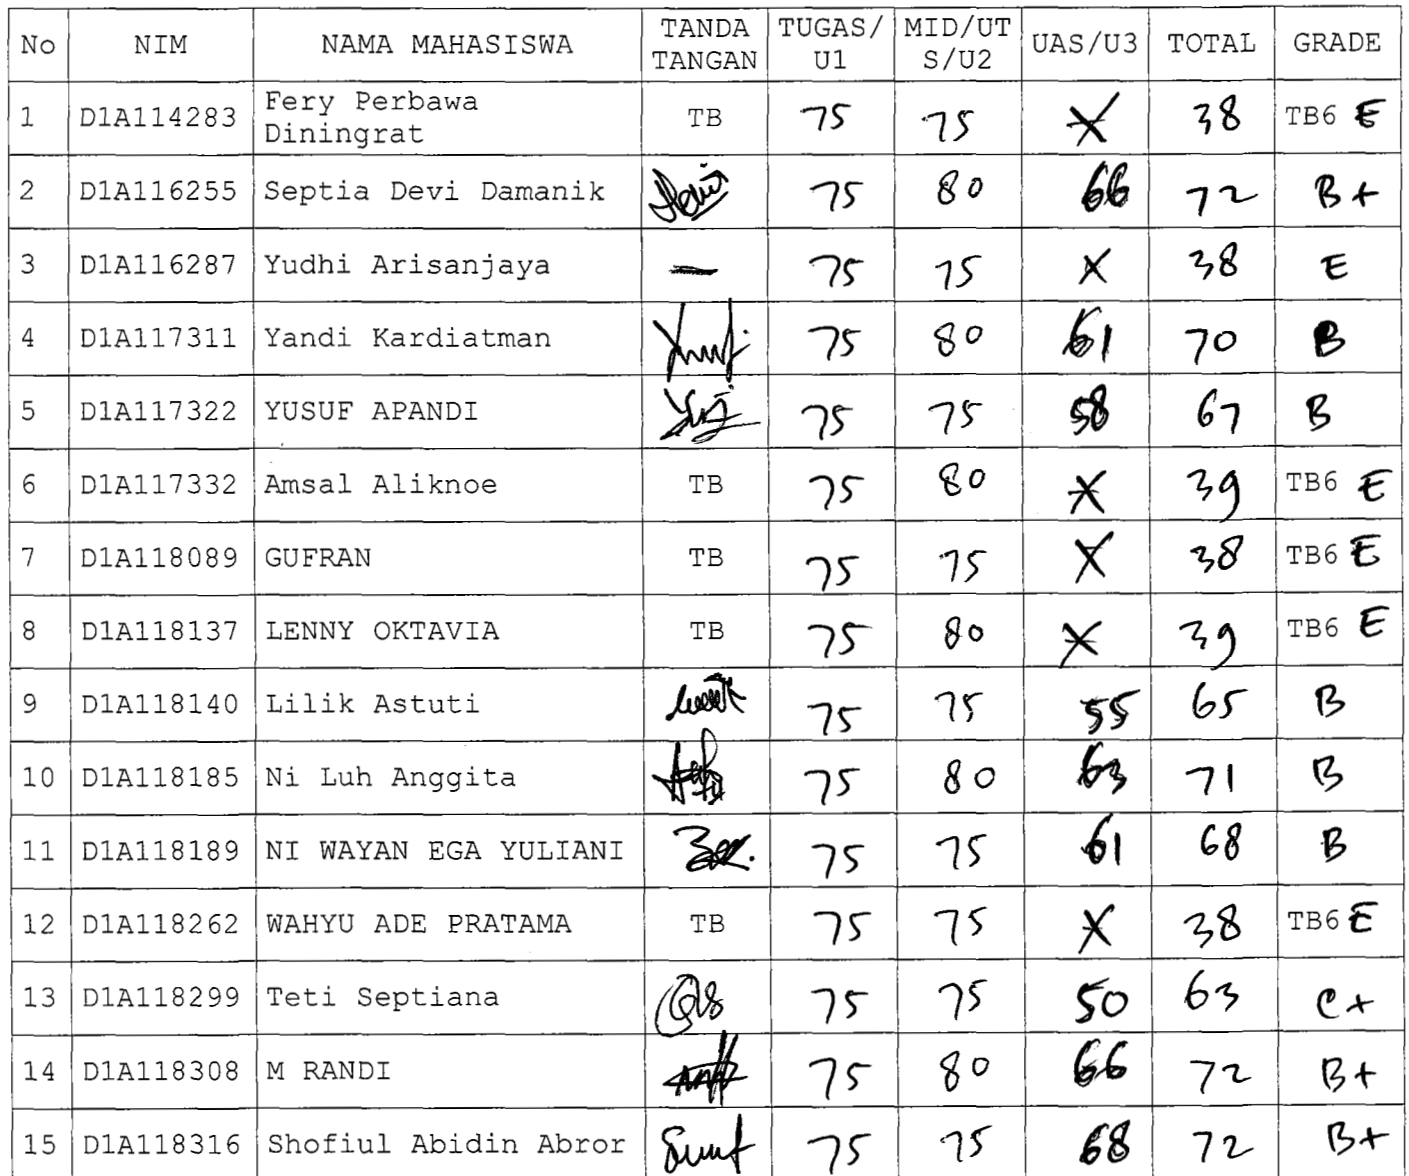 No NIM NAMA MAHASISWA TANDA TANGAN TUGAS/U1 MID/UTS/U2 UAS/U3 TOTAL GRADE
1 D1A114283 Fery Perbawa Diningrat TB 75 75 X 38 TB6 E
2 D1A116255 Septia Devi Damanik 75 80 66 72 B+
3 D1A116287 Yudhi Arisanjaya — 75 75 X 38 E
4 D1A117311 Yandi Kardiatman 75 80 61 70 B
5 D1A117322 YUSUF APANDI 75 75 58 67 B
6 D1A117332 Amsal Aliknoe TB 75 80 X 39 TB6 E
7 D1A118089 GUFRAN TB 75 75 X 38 TB6 E
8 D1A118137 LENNY OKTAVIA TB 75 80 X 39 TB6 E
9 D1A118140 Lilik Astuti 75 75 55 65 B
10 D1A118185 Ni Luh Anggita 75 80 63 71 B
11 D1A118189 NI WAYAN EGA YULIANI 75 75 61 68 B
12 D1A118262 WAHYU ADE PRATAMA TB 75 75 X 38 TB6 E
13 D1A118299 Teti Septiana 75 75 50 63 C+
14 D1A118308 M RANDI 75 80 66 72 B+
15 D1A118316 Shofiul Abidin Abror 75 75 68 72 B+